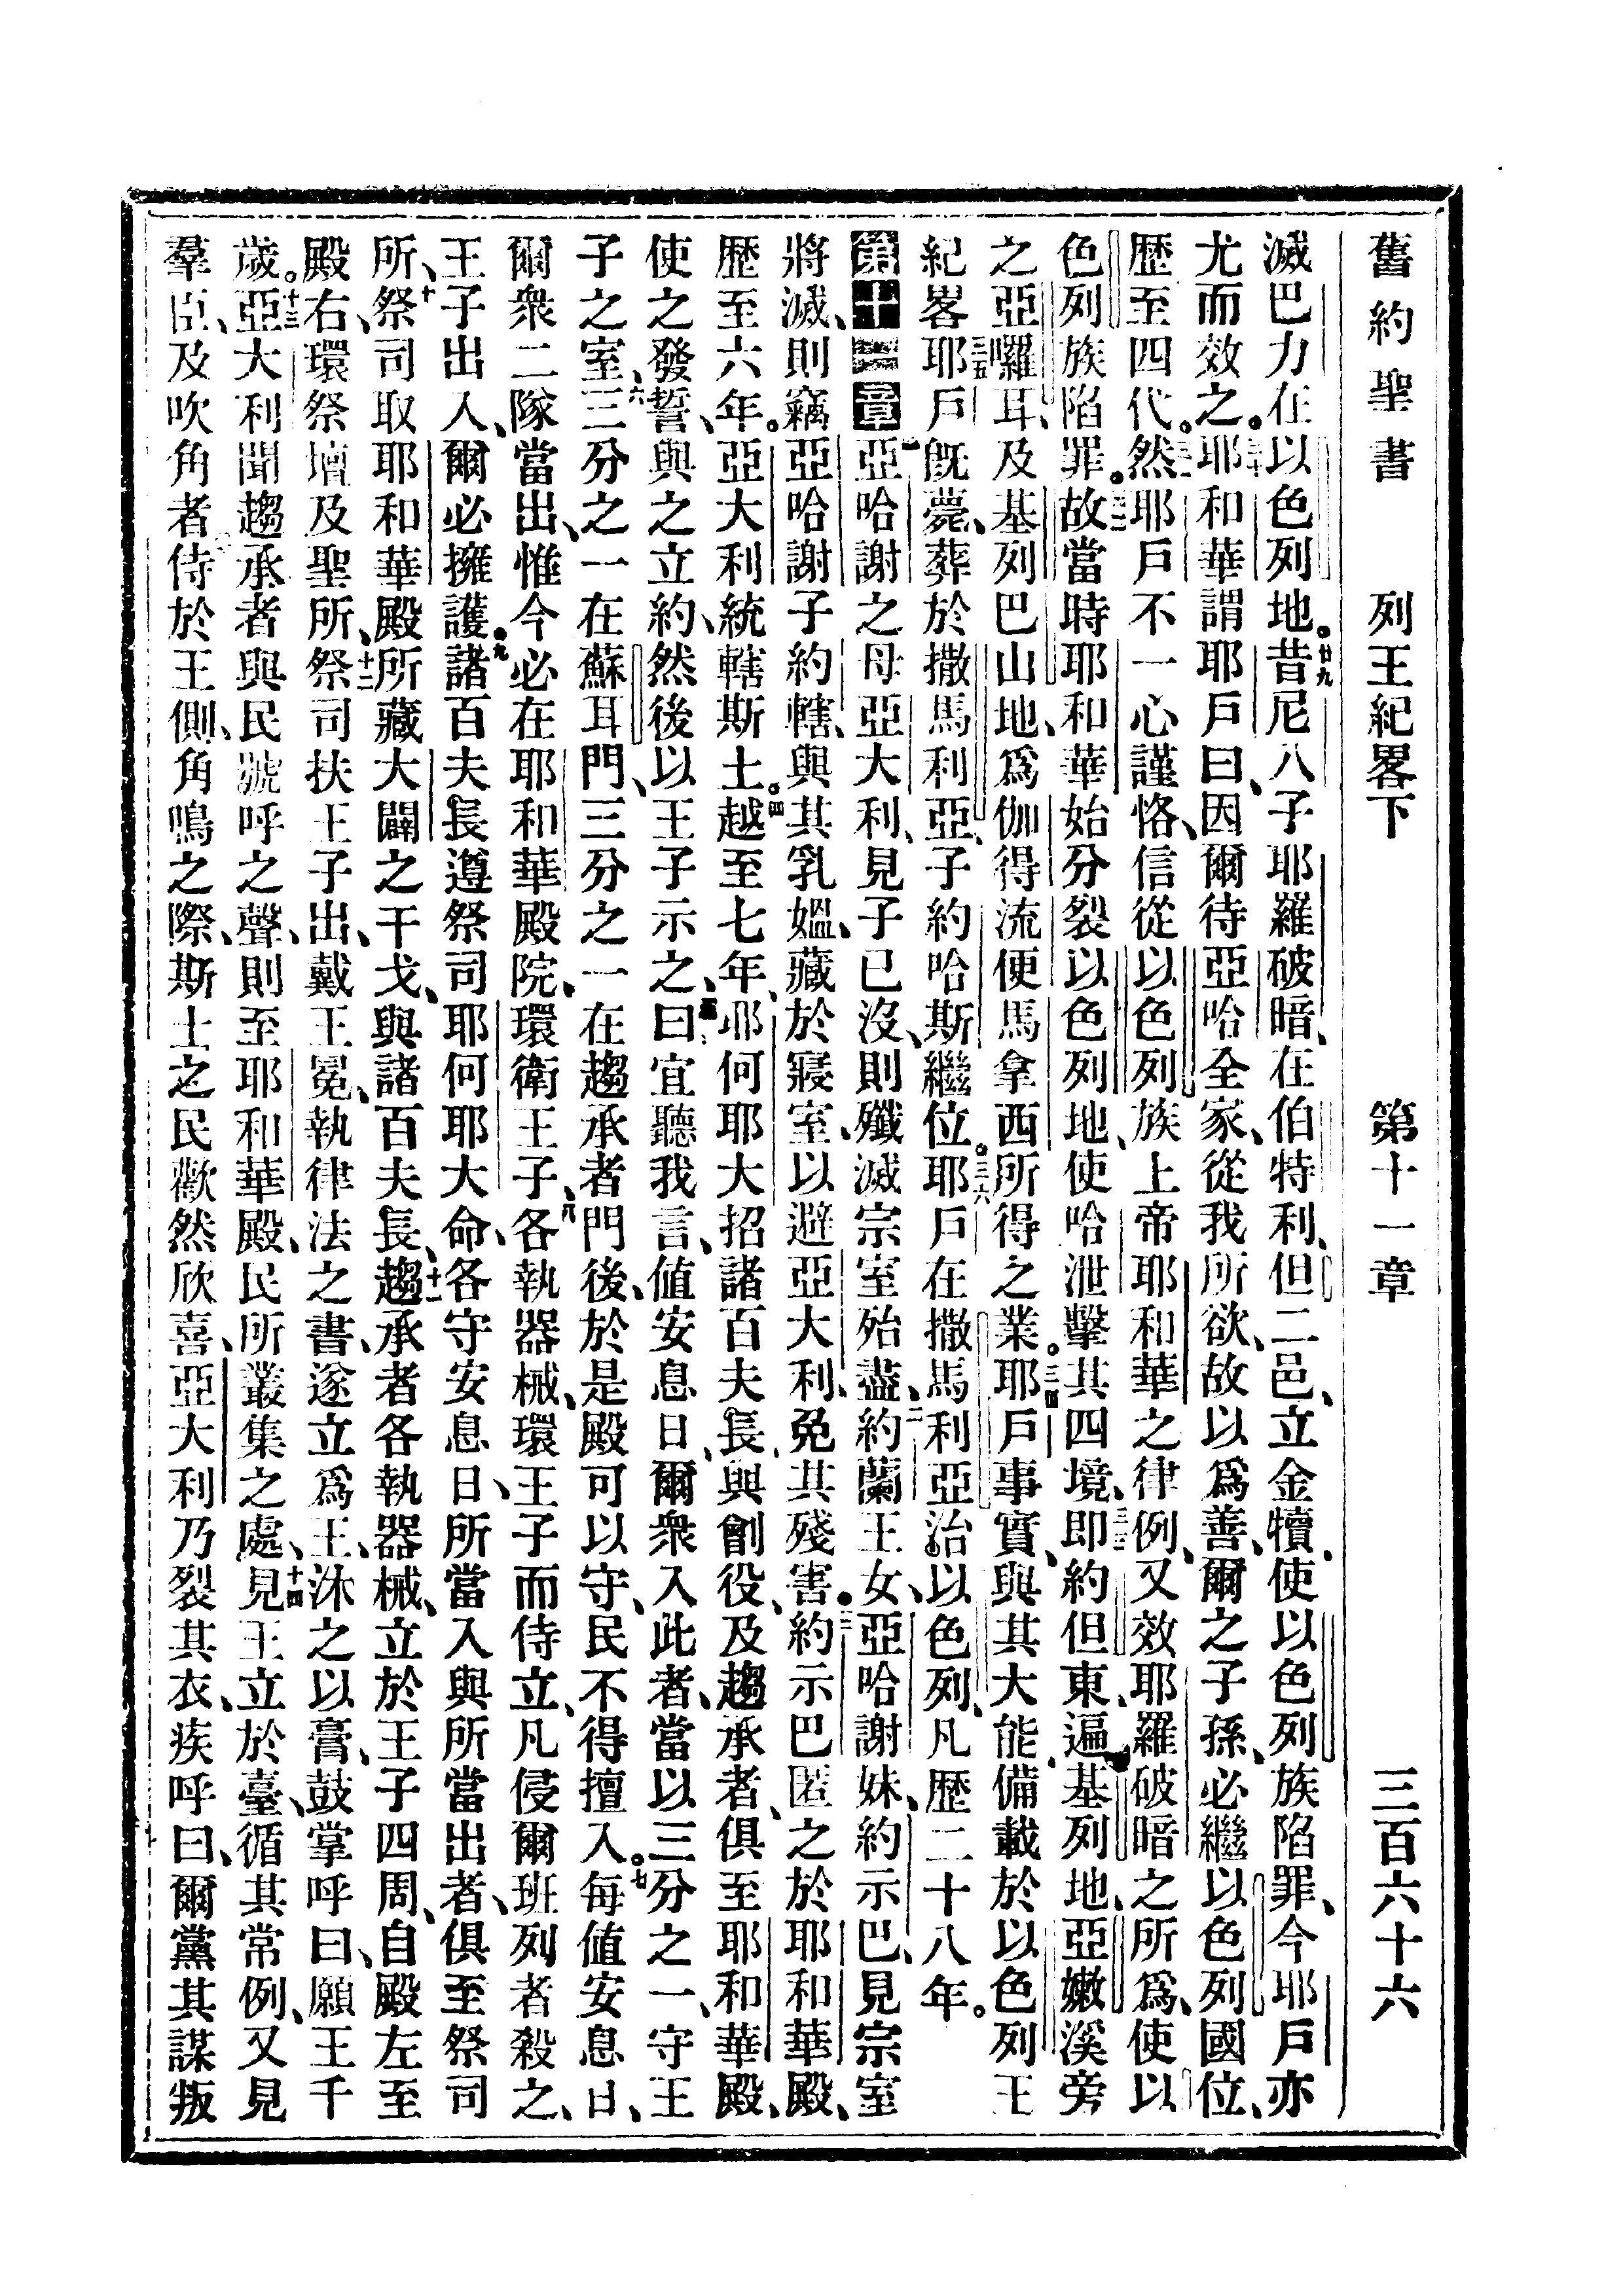 舊約聖書 列王紀畧下 第十一章 三百六十六
滅巴力在以色列地。廿九昔尼八子耶羅破暗、在伯特利、但二邑、立金犢、使以色列族陷罪、今耶戶亦
尤而效之。三十耶和華謂耶戶曰、因爾待亞哈全家、從我所欲、故以爲善、爾之子孫、必繼以色列國位、
歷至四代。三一然耶戶不一心謹恪、信從以色列族上帝耶和華之律例、又效耶羅破暗之所爲、使以
色列族陷罪。三二故當時耶和華始分裂以色列地、使哈泄擊其四境、三三即約但東、遍基列地、亞嫩溪旁
之亞囉耳、及基列巴山地、爲伽得流便馬拿西所得之業。三四耶戶事實、與其大能、備載於以色列王
紀畧、三五耶戶旣薨、葬於撒馬利亞、子約哈斯繼位。三六耶戶在撒馬利亞治以色列、凡歷二十八年。
第十一章 一亞哈謝之母亞大利、見子已沒、則殲滅宗室殆盡、二約蘭王女、亞哈謝妹、約示巴、見宗室
將滅、則竊亞哈謝子約轄、與其乳媼、藏於寢室、以避亞大利、免其殘害。三約示巴匿之於耶和華殿、
歷至六年。亞大利統轄斯土。四越至七年、耶何耶大招諸百夫長、與劊役、及趨承者、俱至耶和華殿、
使之發誓、與之立約、然後以王子示之、五曰宜聽我言、値安息日、爾衆入此者、當以三分之一、守王
子之室、六三分之一在蘇耳門、三分之一在趨承者門後、於是殿可以守、民不得擅入。七每値安息日、
爾衆二隊當出、惟今必在耶和華殿院、環衛王子、八各執器械、環王子而侍立、凡侵爾班列者殺之、
王子出入、爾必擁護。九諸百夫長遵祭司耶何耶大命、各守安息日、所當入與所當出者、俱至祭司
所、十祭司取耶和華殿所藏大闢之干戈、與諸百夫長、十一趨承者各執器械、立於王子四周、自殿左至
殿右、環祭壇及聖所、十二祭司扶王子出、戴王冕、執律法之書、遂立爲王、沐之以膏、鼓掌呼曰、願王千
歲。十三亞大利聞趨承者與民號呼之聲、則至耶和華殿、民所叢集之處、十四見王立於臺、循其常例、又見
羣臣、及吹角者侍於王側、角鳴之際、斯土之民歡然欣喜、亞大利乃裂其衣、疾呼曰、爾黨其謀叛